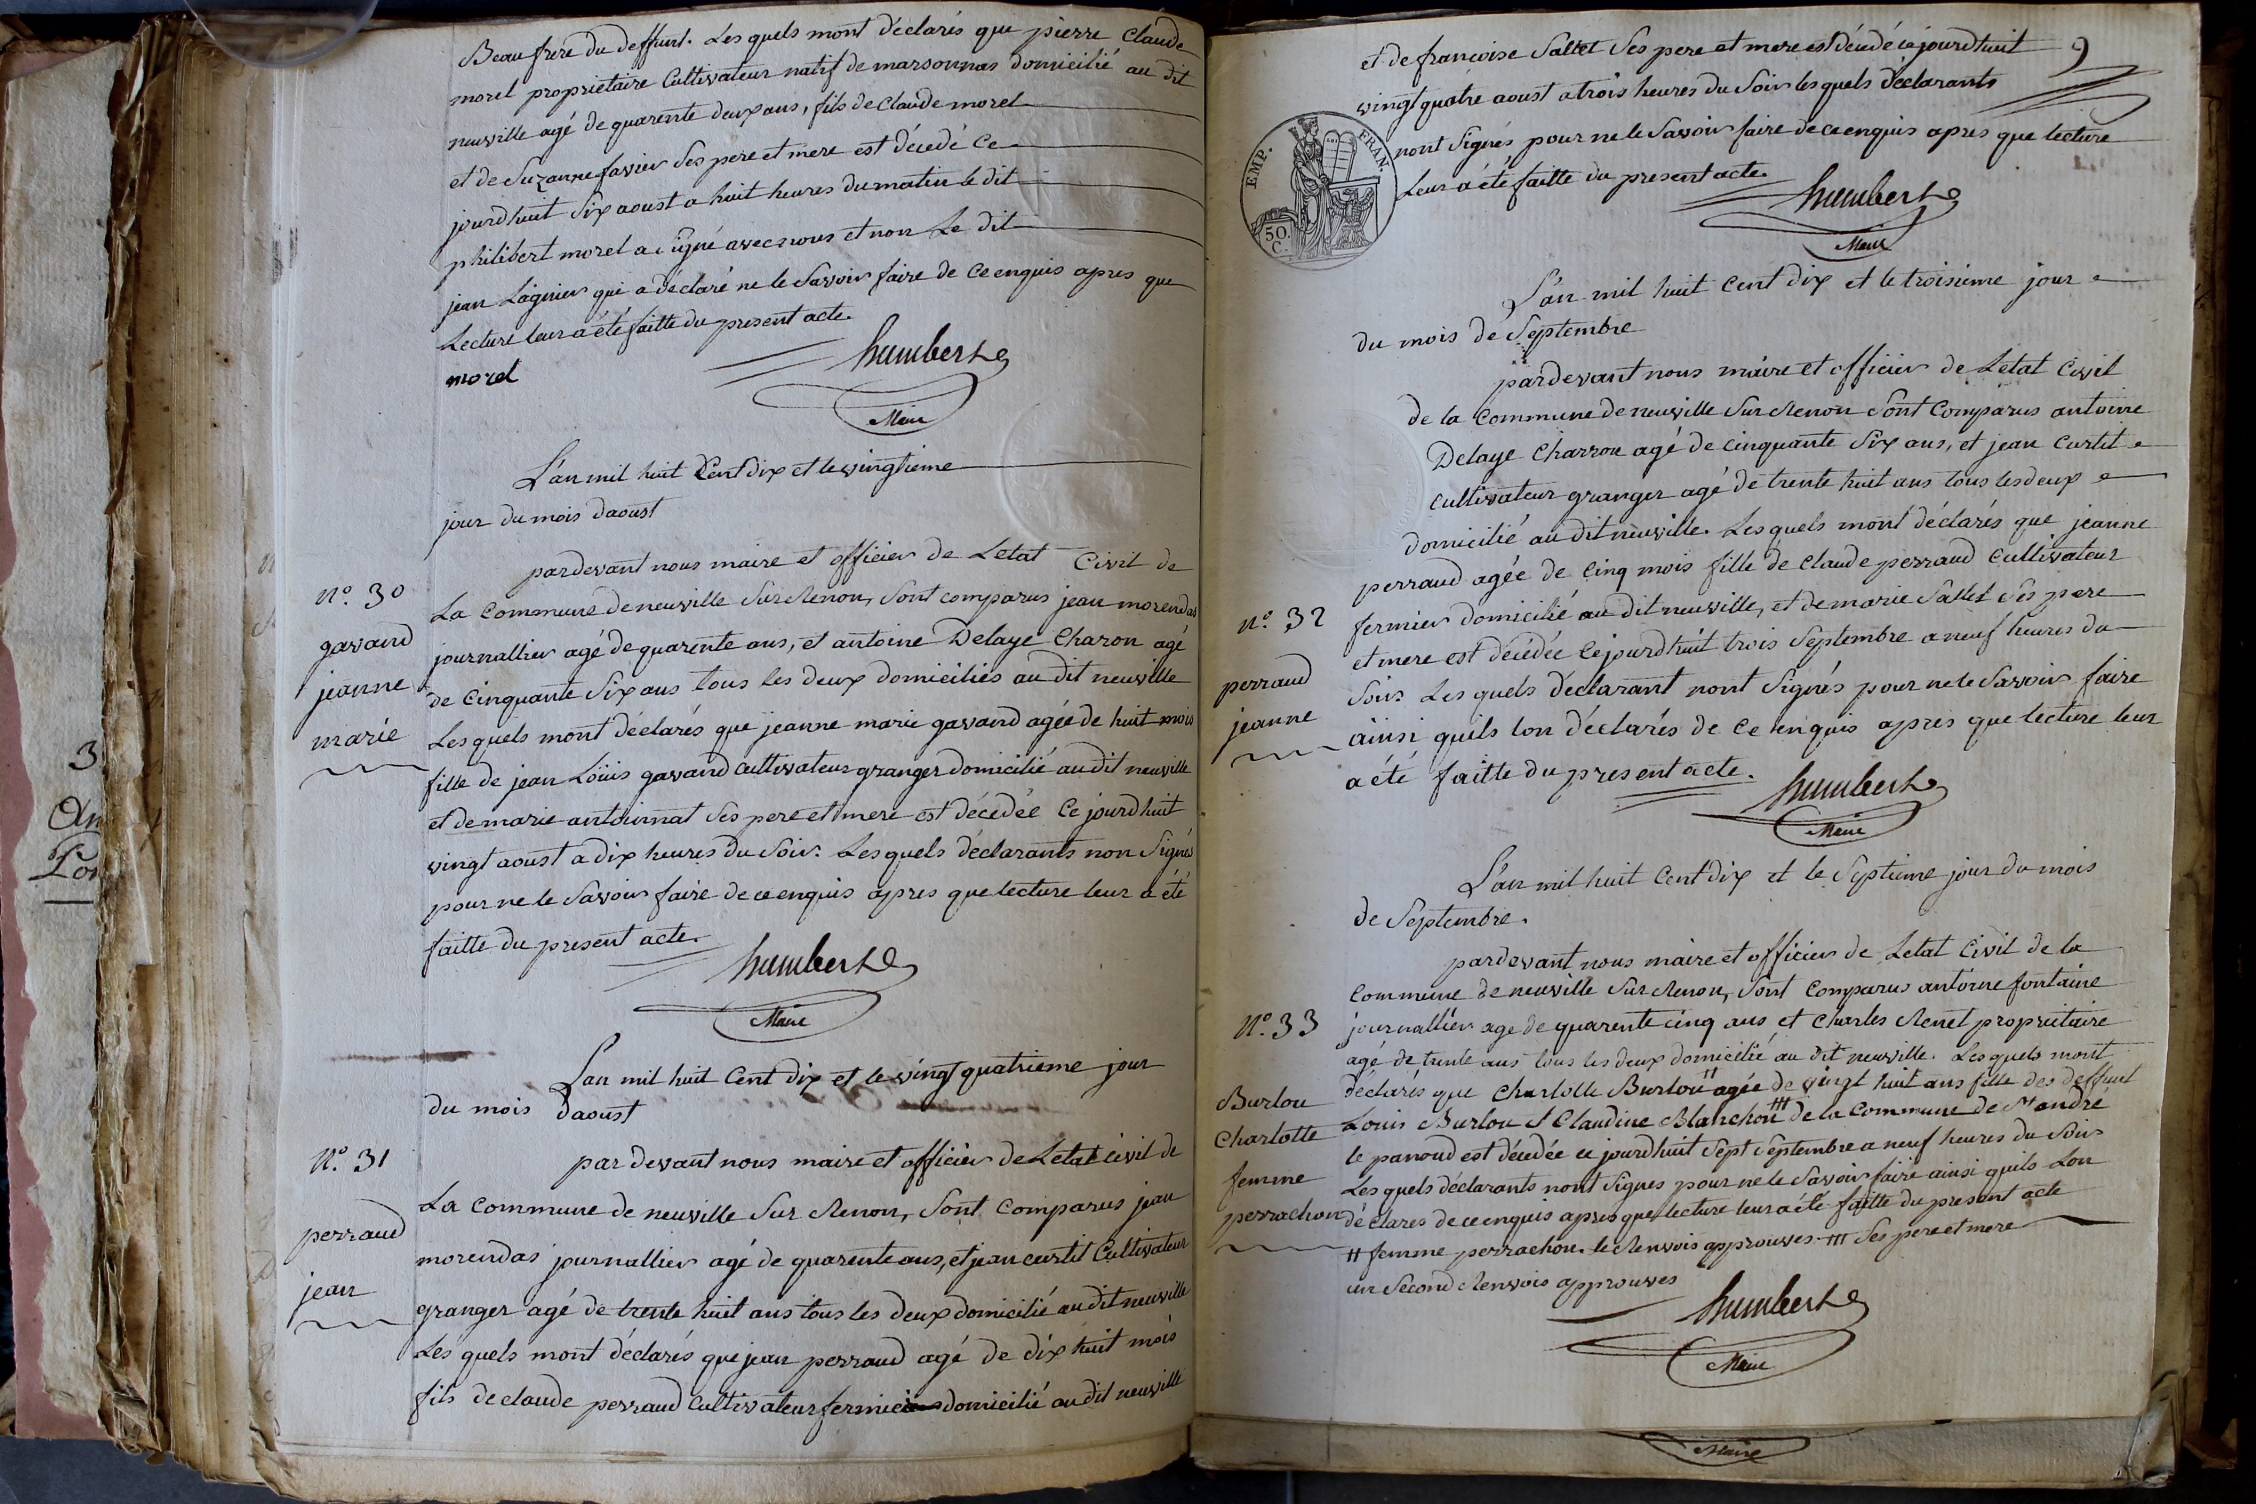 Beaufrere du deffunt. Lesquels mont déclarés que pierre Claude
morel propriétaire Cultivateur natif de marsonnas domicilié au dit
neuville agé de quarente deux ans, fils de Claude morel
et de Suzanne favier Ses pere et mere est décédé Ce
jourdhuit Six aoust a huit heures du matin le dit
philibert morel a signé avec nous et non Le dit
jean Lagnier qui a déclaré ne le Savoir faire de Ce enquis apres que
Lecture leur a été faitte du present acte.
morel humbert
Maire
L'an mil huit Cent dix et le vingtieme
jour du mois daoust
pardevant nous maire et officier de Letat Civil de
n.o 30
La Commune de neuville Sur Renon, Sont comparus jean morendas
gavand
journallier agé de quarente ans, et antoine Delaye Charon agé
jeanne
de Cinquante Six ans tous les deux domiciliés au dit neuville
marie
Lesquels mont déclarés que jeanne marie gavand agée de huit mois
fille de jean Loüis gavand Cultivateur granger domicilié au dit neuville
et de marie antoinnat Ses pere et mere est décédée Ce jourdhuit
vingt aoust a dix heures du Soir. Lesquels déclarants non Signés
pour ne le Savoir faire de ce enquis apres que lecture leur a été
faitte du present acte.
humbert
Maire
L'an mil huit Cent dix et le vingt quatrieme jour
du mois daoust
n.o 31
par devant nous maire et officier de Letat civil de
La Commune de neuville Sur Renon, Sont Comparus jean
perraud
morendas journallier agé de quarente ans, et jean curtil Cultivateur
jean
granger agé de trente huit ans tous les deux domicilié au dit neuville
Les quels mont déclarés que jean perraud agé de dix huit mois
fils de claude perraud Cultivateur fermier domicilié au dit neuville
9
et de francoise Sallet Ses pere et mere est décédé ce jourdhuit
vingt quatre aoust a trois heures du Soir lesquels déclarants
nont Signés pour ne le Savoir faire de ce enquis apres que lecture
Leur a été faitte du present acte.
EMP. FRAN.
50. C.
humbert
Maire
L'an mil huit Cent dix et le troisieme jour
du mois de Septembre
pardevant nous maire et officier de Letat Civil
de la Commune de neuville Sur Renon Sont Comparus antoine
Delaye Charron agé de cinquante Six ans, et jean Curtil
Cultivateur granger agé de trente huit ans tous les deux
domicilié au dit neuville. Lesquels mont déclarés que jeanne
perraud agée de Cinq mois fille de Claude perraud Cultivateur
n.o 32
fermier domicilié au dit neuville, et de marie Sallet Ses pere
et mere est décédée Ce jourdhuit trois Septembre a neuf heures du
perraud
Soir. Les quels déclarant nont Signés pour ne le Savoir faire
jeanne
ainsi quils lon déclarés de Ce enquis apres que lecture leur
a été faitte du present acte.
humbert
Maire
L'an mil huit Cent dix et le Septieme jour du mois
de Septembre.
pardevant nous maire et officier de Letat Civil de la
commune de neuville Sur Renon, Sont Comparus antoine fontaine
N.o 33
journallier age de quarente cinq ans et Charles Renet propriétaire
agé de trente ans tous les deux domicilié au dit neuville. Lesquels mont
déclarés que Charlotte Burlou # agée de vingt huit ans fille des deffunt
Burlou
Louis Burlou et Claudine Blanchon ### de la Commune de St andré
Charlotte
le panoud est décédée ce jourdhuit Sept Septembre a neuf heures du Soir
femme
Les quels déclarants nont Signes pour ne le Savoir faire ainsi quils Lon
perrachon
déclares de ce enquis apres que lecture leur a été faitte du present acte
# femme perrachon. le Renvois approuves. ### Ses pere et mere
un Second Renvois approuves
humbert
Maire
Maire